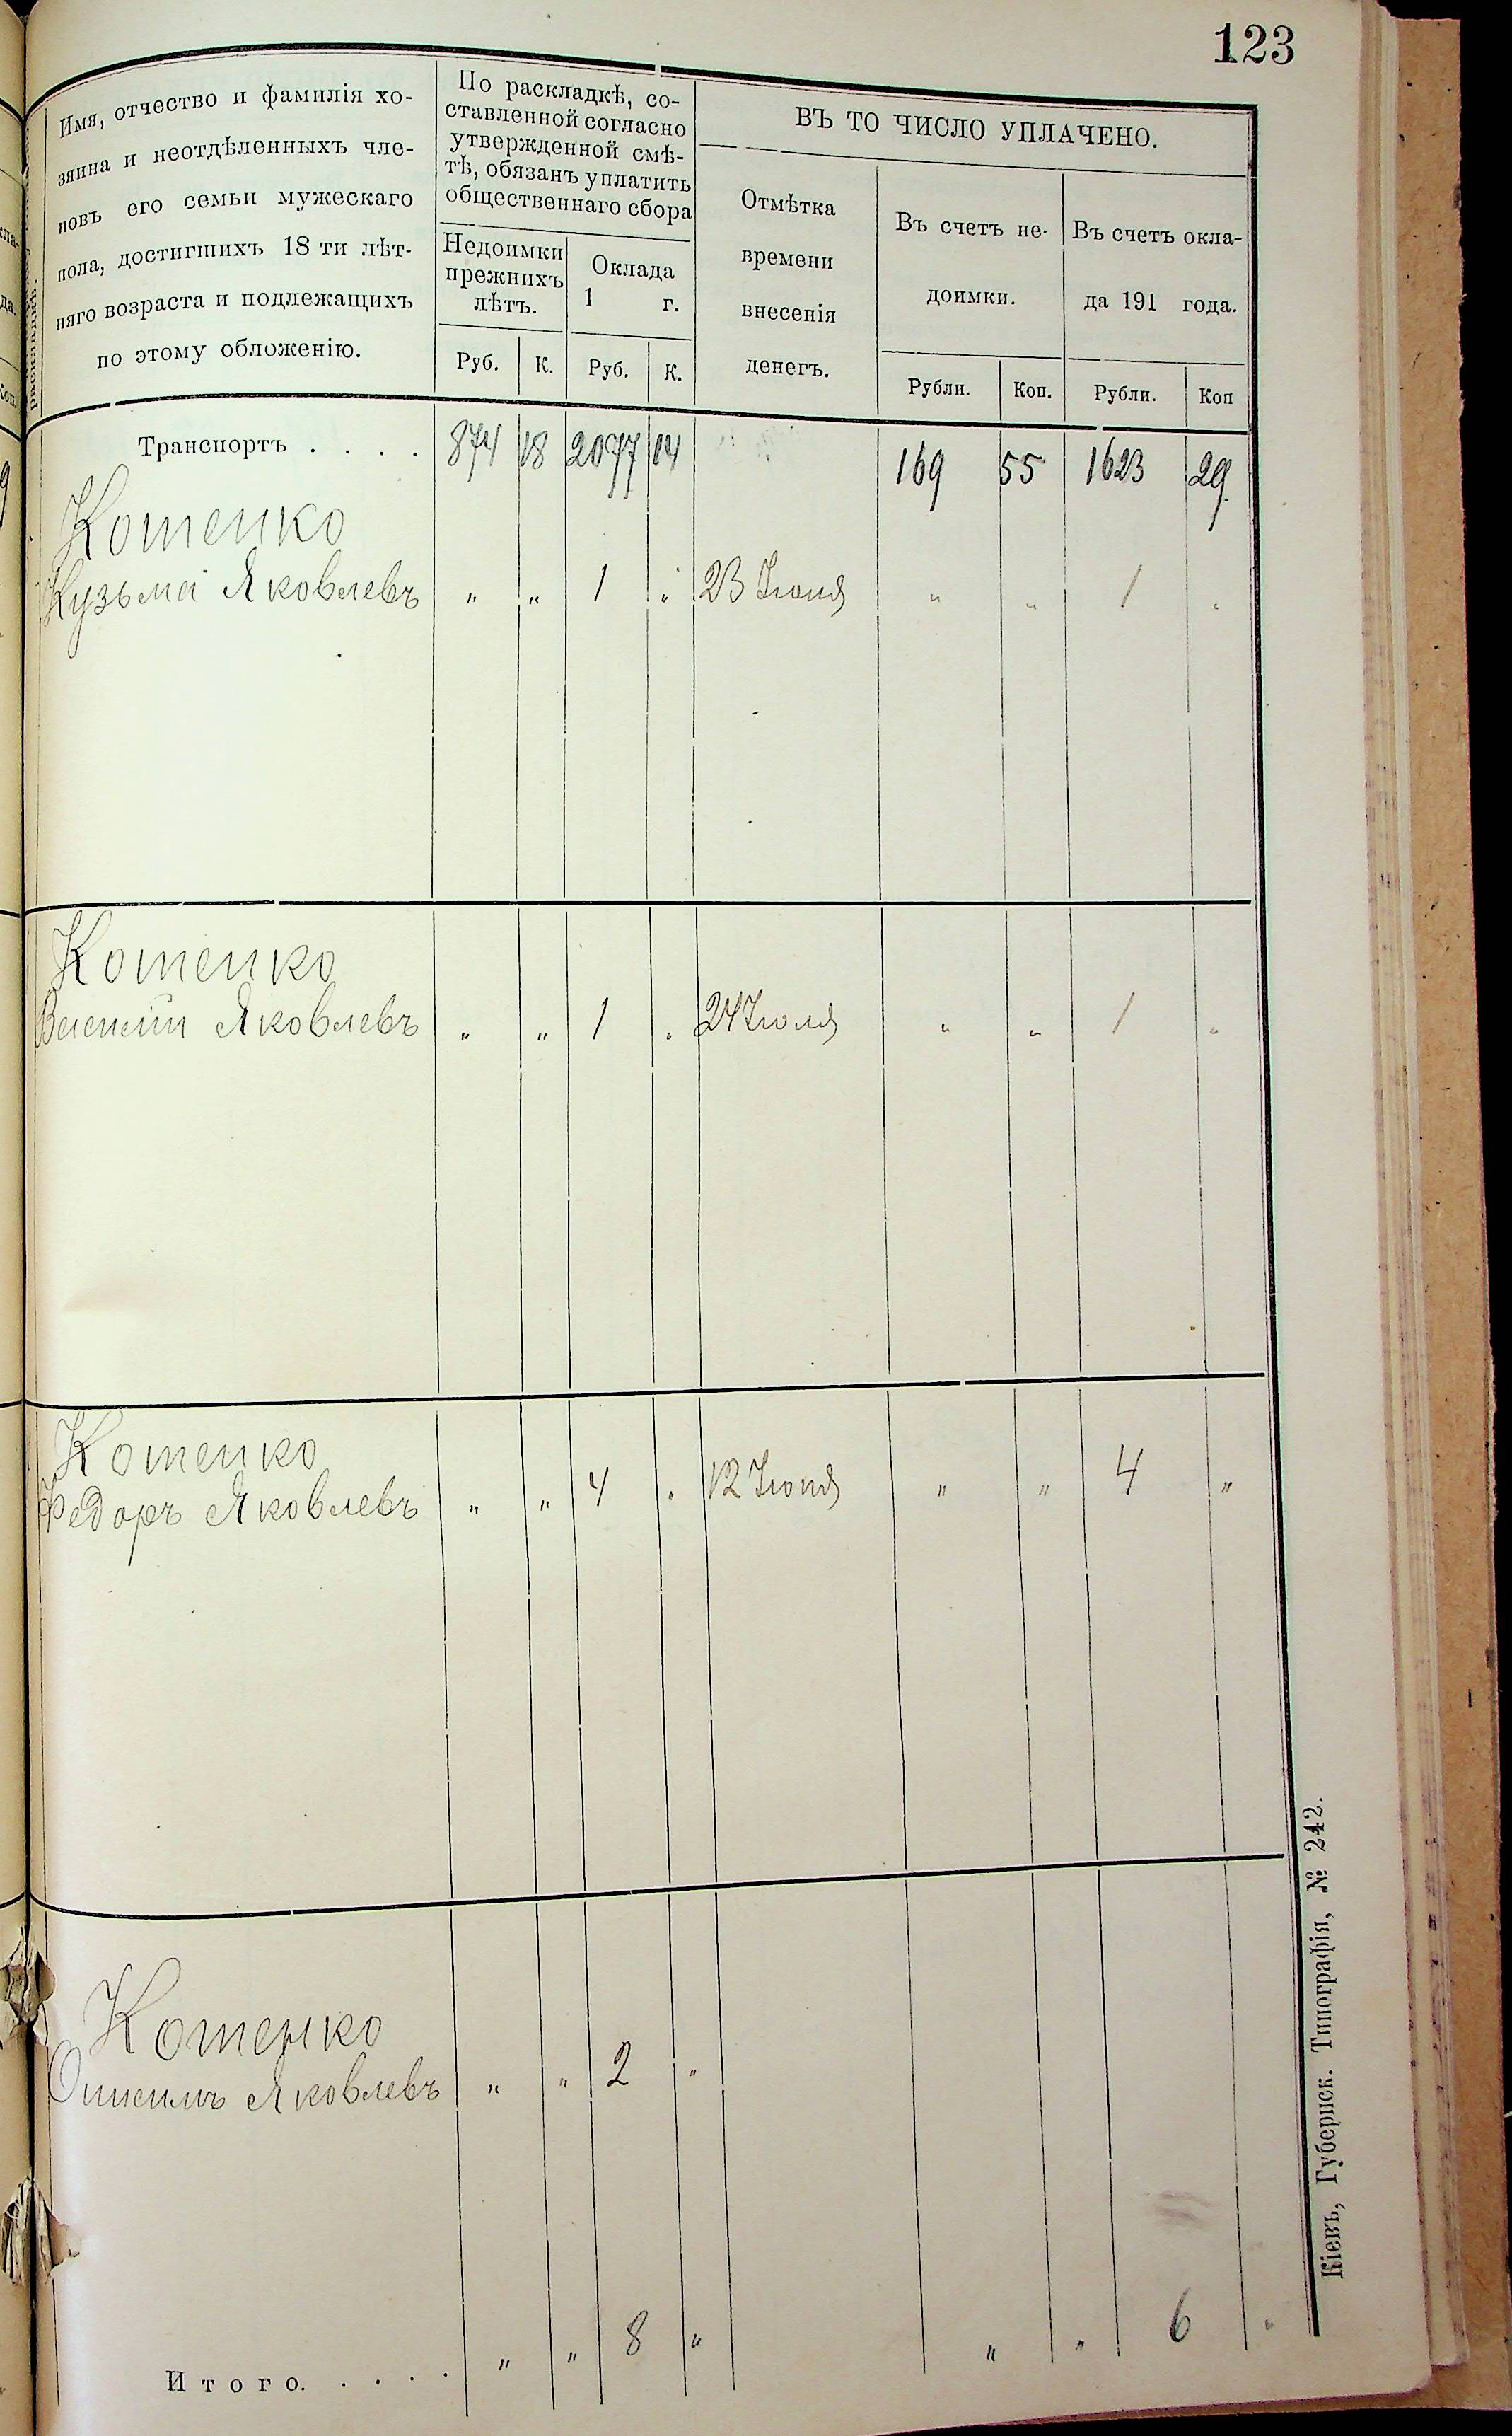 123
Имя, отчество и фамилія хо-
зяина и неотдѣленныхъ чле-
новъ его семьи мужескаго
пола, достигшихъ 18 ти лѣт-
няго возраста и подлежащихъ
по этому обложенію.
По раскладкѣ, со-
ставленной согласно
утвержденной смѣ-
тѣ, обязанъ уплатить
общественнаго сбора
Недоимки
прежнихъ
лѣтъ.
Оклада
1 г.
Руб. К. Руб. К.
ВЪ ТО ЧИСЛО УПЛАЧЕНО.
Отмѣтка
времени
внесенія
денегъ.
Въ счетъ не-
доимки.
Въ счетъ окла-
да 191 года.
Рубли. Коп. Рубли. Коп
Транспортъ . . . . 874 18 2077 14 169 55 1623 29
Котенко
Кузьма Яковлевъ " " 1 " 23 Іюня " " 1 "
Котенко
Василій Яковлевъ " " 1 " 24 Іюля " " 1 "
Котенко
Федоръ Яковлевъ " " 4 " 12 Іюня " " 4 "
Котенко
Онисимъ Яковлевъ " " 2 "
Итого. . . . . " " 8 " " " 6 "
Кіевъ, Губернск. Типографія, № 242.